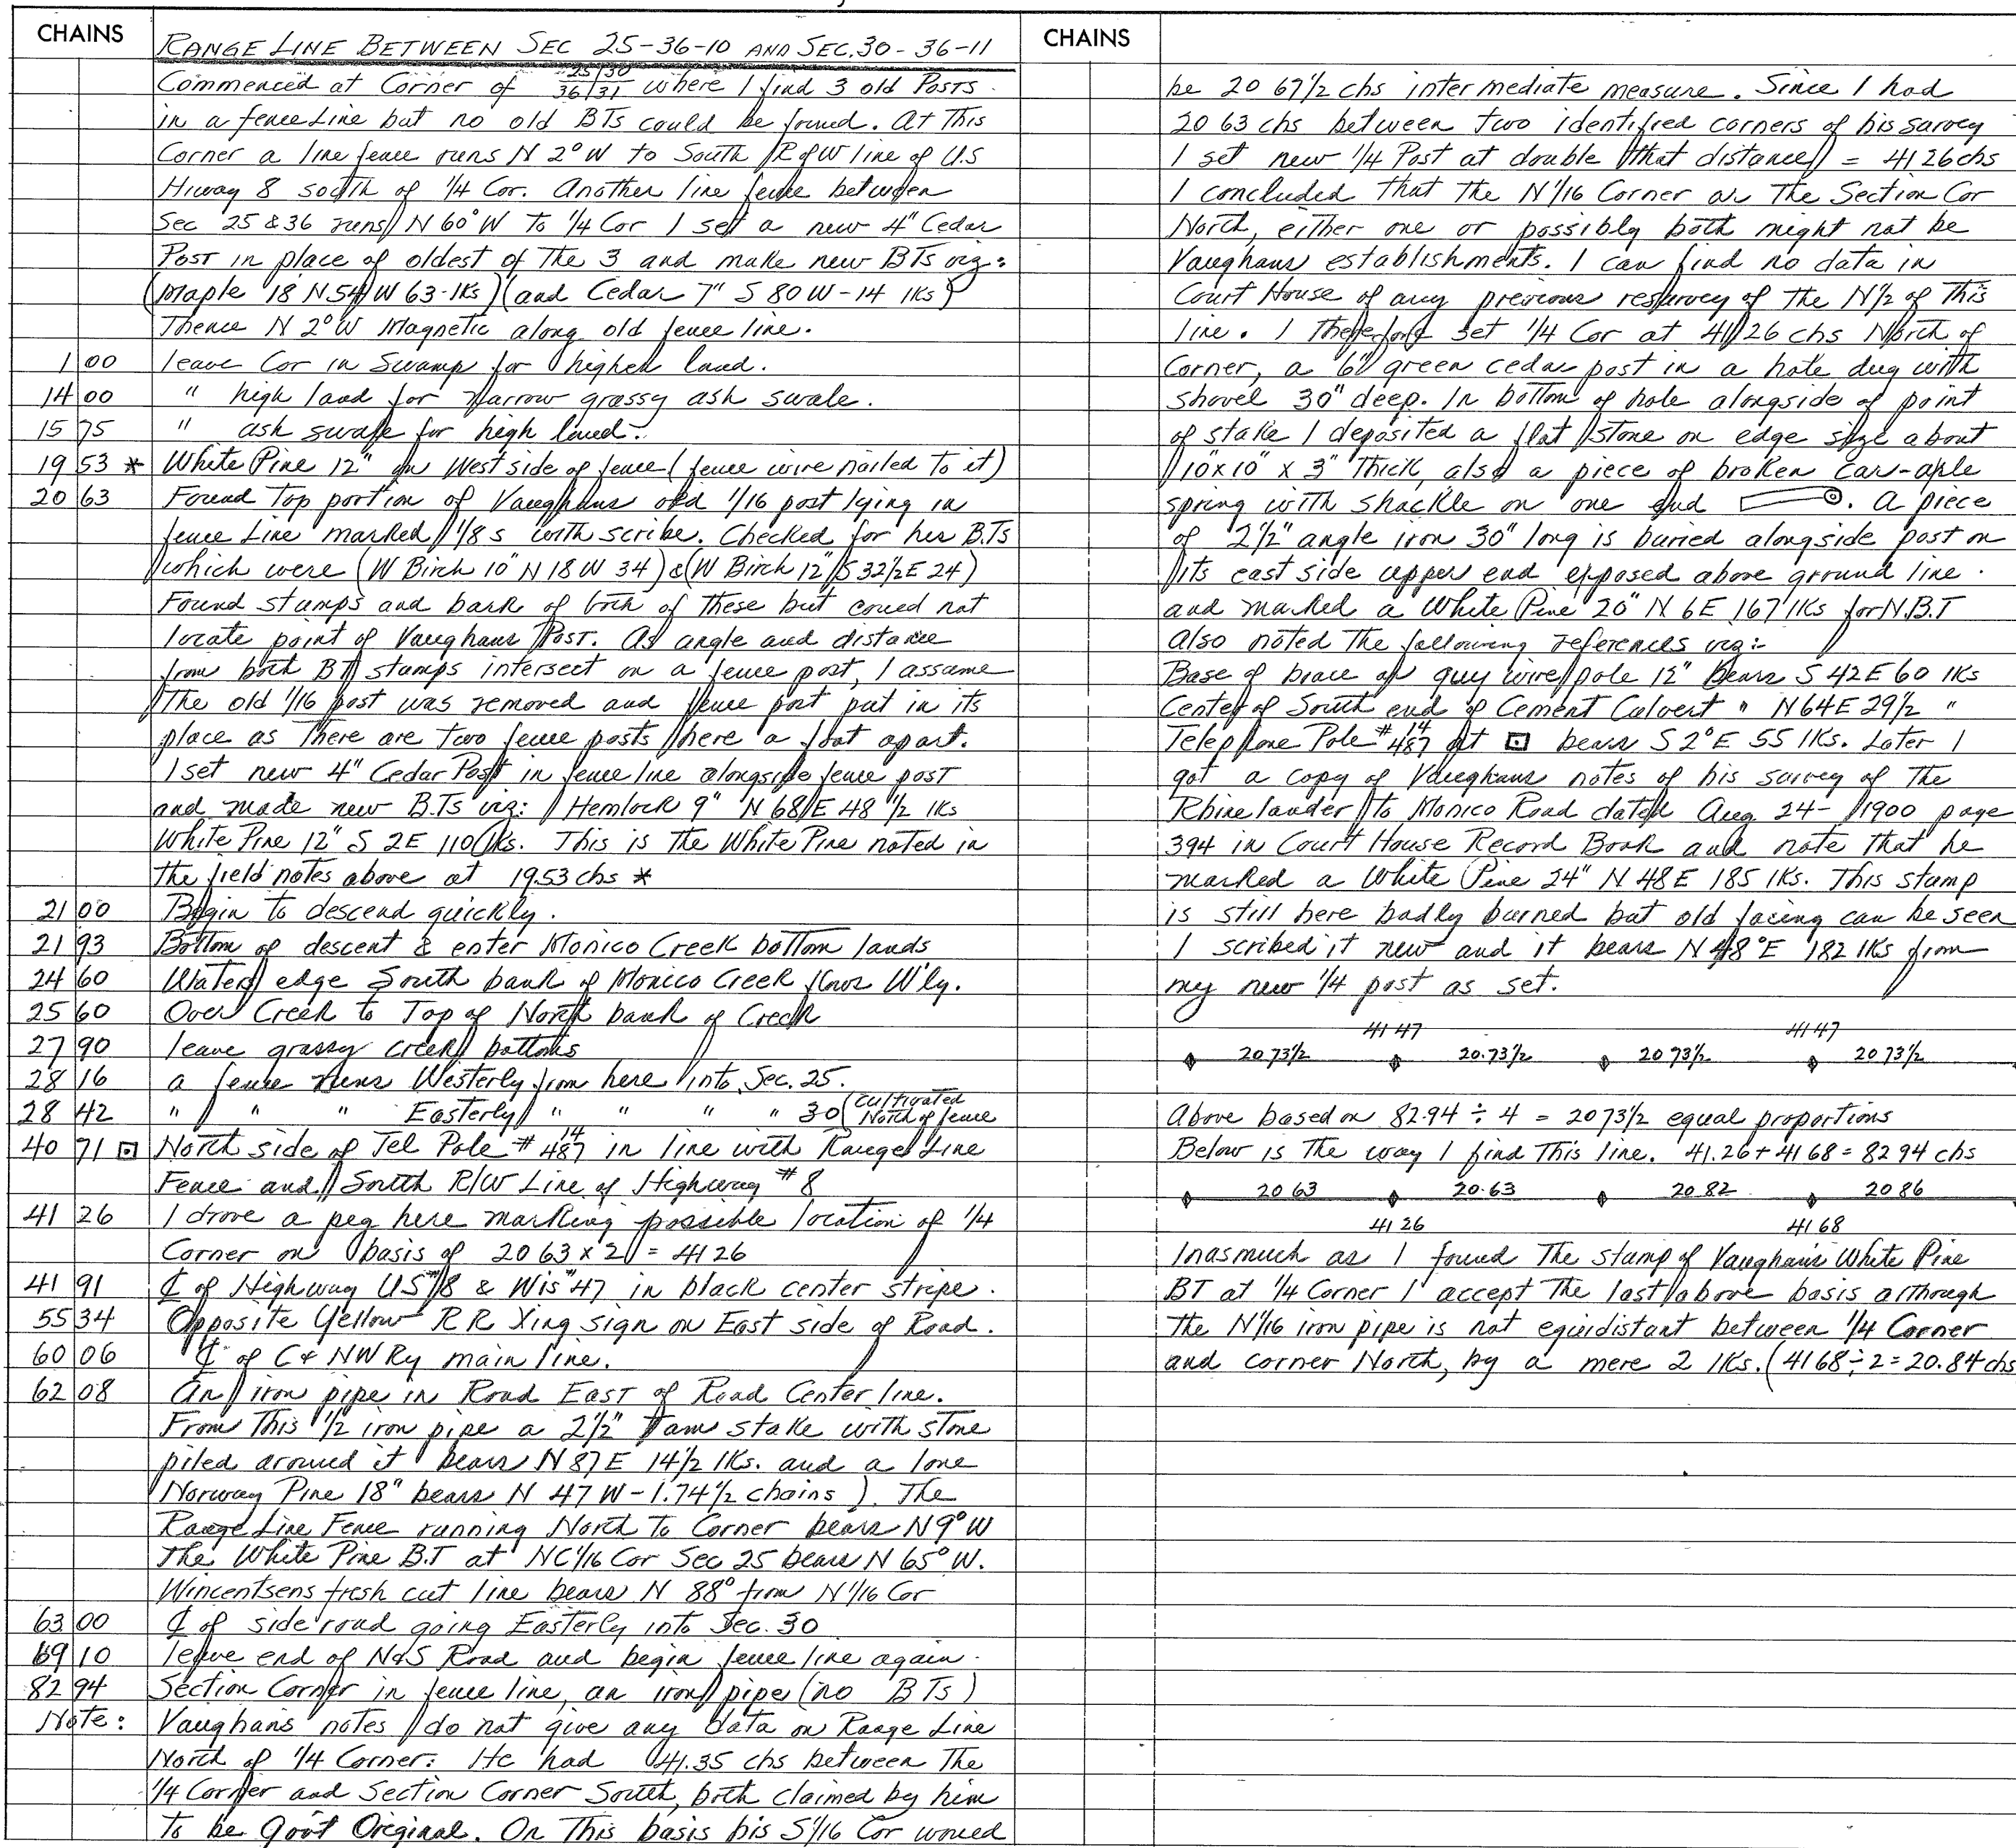 CHAINS
RANGE LINE BETWEEN SEC 25-36-10 AND SEC. 30-36-11
Commenced at Corner of 25|30 / 36|31 where I find 3 old Posts
in a fence Line but no old BTs could be found. At This
Corner a line fence runs N 2° W to South R of W line of U.S
Hiway 8 south of 1/4 Cor. Another line fence between
Sec 25 & 36 runs N 60° W To 1/4 Cor I set a new 4" Cedar
Post in place of oldest of The 3 and make new BTs viz:
(Maple 18 N54W 63-lKs) (and Cedar 7" S 80 W-14 lKs)
Thence N 2° W Magnetic along old fence line.
1 00 leave Cor in Swamp for higher land.
14 00 " high land for Narrow grassy ash swale.
15 75 " ash swale for high land.
19 53 * White Pine 12" on West side of fence (fence wire nailed to it)
20 63 Found Top portion of Vaughans old 1/16 post lying in
fence Line marked 1/8 s with scribe. Checked for his B.Ts
which were (W Birch 10" N 18 W 34) & (W Birch 12" S 32 1/2 E 24)
Found stumps and bark of both of These but could not
locate point of Vaughans Post. As angle and distance
from both BT stumps intersect on a fence post, I assume
The old 1/16 post was removed and fence post put in its
place as There are two fence posts here a foot apart.
I set new 4" Cedar Post in fence line alongside fence post
and made new B.Ts viz: Hemlock 9" N 68 E 48 1/2 lKs
White Pine 12" S 2E 110 lKs. This is the White Pine noted in
the field notes above at 19.53 chs *
21 00 Begin to descend quickly.
21 93 Bottom of descent & enter Monico Creek bottom lands
24 60 Waters edge South bank of Monico Creek flows W'ly.
25 60 Over Creek to Top of North bank of Creek
27 90 leave grassy creek bottoms
28 16 a fence runs Westerly from here into Sec. 25.
28 42 " " " Easterly " " " " 30 (Cultivated North of fence
40 71 ⊡ North side of Tel Pole # 14/487 in line with Range Line
Fence and South R/W Line of Highway #8
41 26 I drove a peg here marking possible location of 1/4
Corner on basis of 20 63 x 2 = 41 26
41 91 ℄ of Highway US #8 & Wis #47 in black center stripe.
55 34 Opposite Yellow R R Xing sign on East side of Road.
60 06 ℄ of C & NW Ry main line.
62 08 An iron pipe in Road East of Road Center line.
From This 1/2 iron pipe a 2 1/2" Tam stake with stone
piled around it bears N 87 E 14 1/2 lKs. and a lone
Norway Pine 18" bears N 47 W - 1.74 1/2 chains). The
Range Line Fence running North To Corner bears N 9° W
The White Pine B.T at NC 1/16 Cor Sec 25 bears N 65° W.
Wincentsens fresh cut line bears N 88° from N 1/16 Cor
63 00 ℄ of side road going Easterly into Sec. 30
69 10 leave end of N&S Road and begin fence line again.
82 94 Section Corner in fence line, an iron pipe (no BTs)
Note: Vaughans notes do not give any data on Range Line
North of 1/4 Corner: He had 41.35 chs between The
1/4 Corner and Section Corner South, both claimed by him
To be Govt Original. On This basis his S 1/16 Cor would
CHAINS
be 20 67 1/2 chs intermediate measure. Since I had
20 63 chs between two identified corners of his survey
I set new 1/4 Post at double that distance = 41 26 chs
I concluded That the N 1/16 Corner or The Section Cor
North, either one or possibly both might not be
Vaughans establishments. I can find no data in
Court House of any previous resurvey of the N 1/2 of This
line. I Therefore set 1/4 Cor at 41 26 chs North of
Corner, a 6" green cedar post in a hole dug with
shovel 30" deep. In bottom of hole alongside of point
of stake I deposited a flat stone on edge size about
10" x 10" x 3" Thick, also a piece of broken car-axle
spring with shackle on one end . A piece
of 2 1/2" angle iron 30" long is buried alongside post on
its east side upper end exposed above ground line.
and marked a White Pine 20" N 6E 167 lKs for N.B.T
Also noted The following references viz:-
Base of brace or guy wire pole 12" Bears S 42 E 60 lKs
Center of South end of Cement Culvert " N 64 E 29 1/2 "
Telephone Pole # 14/487 at ⊡ bears S 2° E 55 lKs. Later I
got a copy of Vaughans notes of his survey of The
Rhinelander to Monico Road dated Aug. 24- 1900 page
394 in Court House Record Book and note that he
marked a White Pine 24" N 48 E 185 lKs. This stump
is still here badly burned but old facing can be seen
I scribed it new and it bears N 48° E 182 lKs from
my new 1/4 post as set.
41 47 41 47
20 73 1/2 20.73 1/2 20 73 1/2 20 73 1/2
Above based on 82.94 ÷ 4 = 20 73 1/2 equal proportions
Below is The way I find This line. 41.26 + 41 68 = 82 94 chs
20 63 20.63 20.82 20 86
41 26 41 68
Inasmuch as I found The stump of Vaughan's White Pine
BT at 1/4 Corner I accept The last above basis although
The N 1/16 iron pipe is not equidistant between 1/4 Corner
and corner North, by a mere 2 lKs. (41 68 ÷ 2 = 20.84 chs